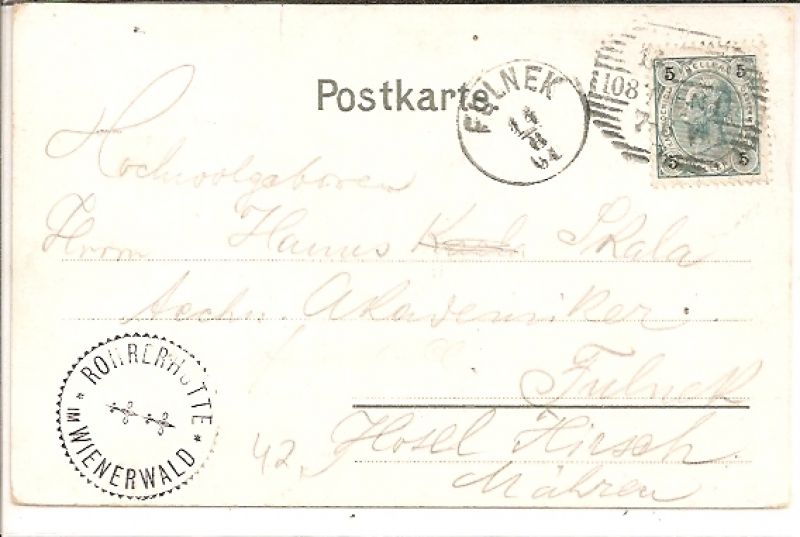 Postkarte.
FULNEK
5 5
108
5 5
Hochwolgeboren
Herrn Hanns Skala
Techn. Akademiker
Fulnek
42, Hotel Hirsch.
Mähren
ROHRERHÜTTE
* IM WIENERWALD *